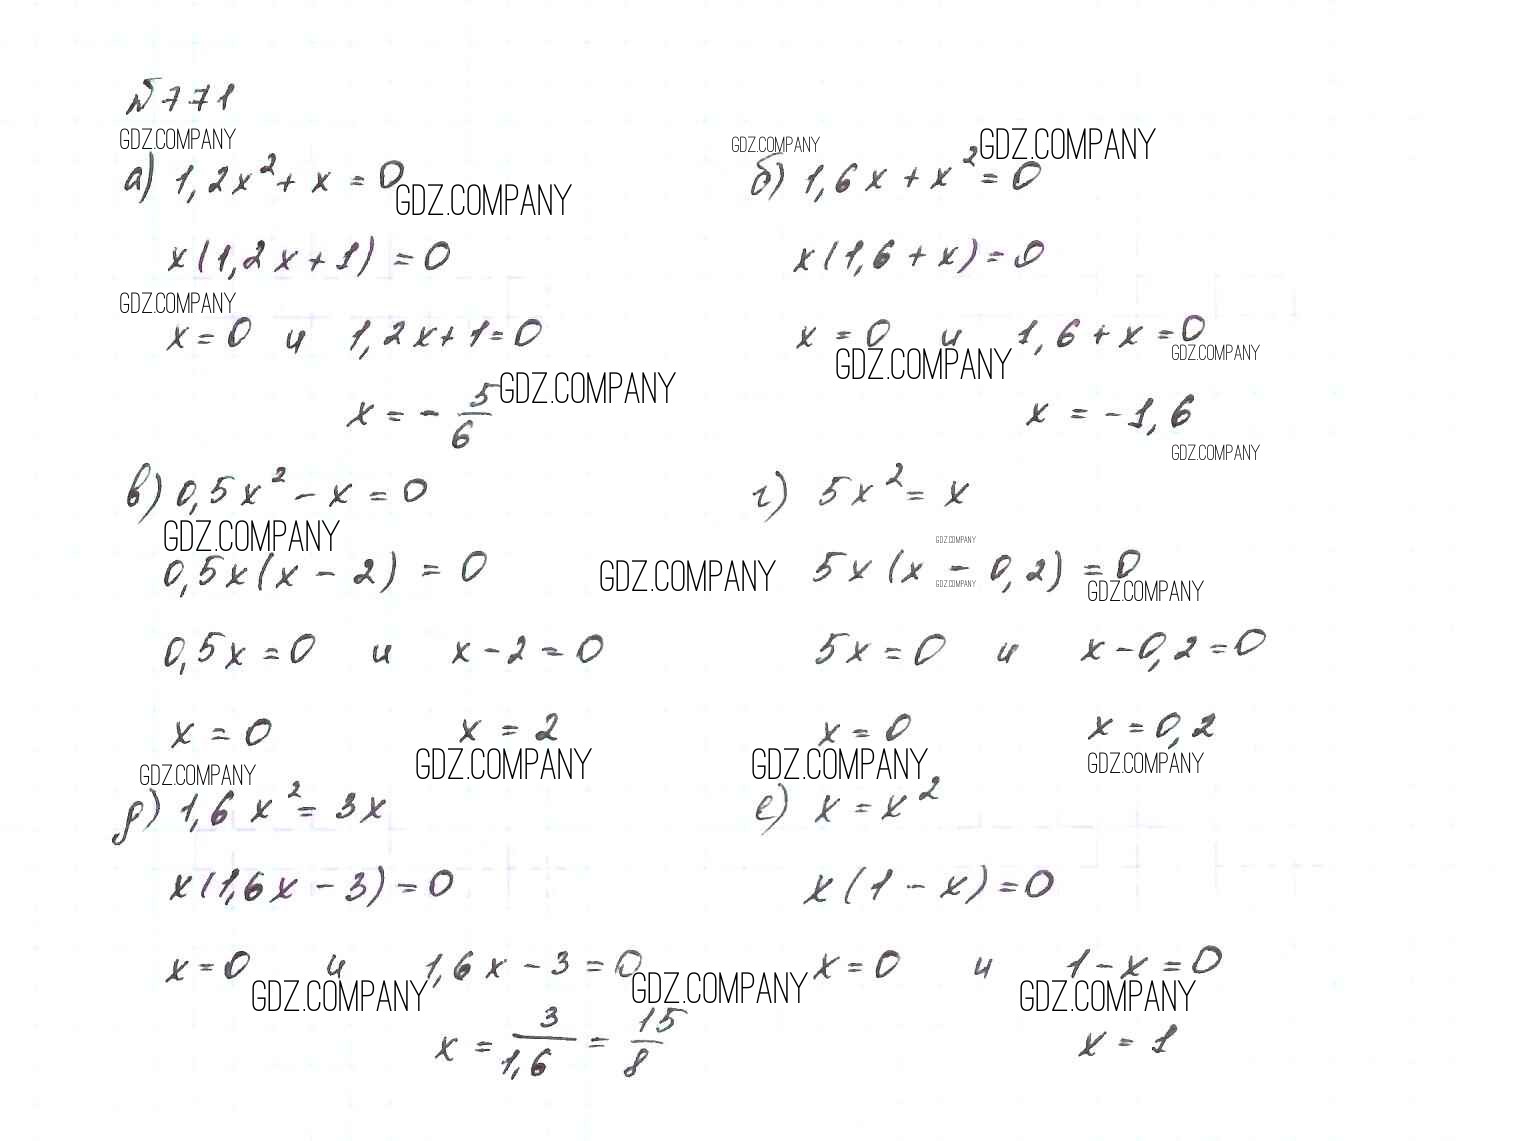 № 771
GDZ.COMPANY
GDZ.COMPANY
GDZ.COMPANY
а) 1,2x² + x = 0
GDZ.COMPANY
x(1,2x + 1) = 0
GDZ.COMPANY
x = 0 и 1,2x + 1 = 0
GDZ.COMPANY
x = - 5/6
б) 1,6x + x² = 0
x(1,6 + x) = 0
x = 0 и 1,6 + x = 0
GDZ.COMPANY
GDZ.COMPANY
x = -1,6
GDZ.COMPANY
в) 0,5x² - x = 0
GDZ.COMPANY
0,5x(x - 2) = 0
GDZ.COMPANY
0,5x = 0 и x - 2 = 0
x = 0 x = 2
GDZ.COMPANY
г) 5x² = x
GDZ.COMPANY
5x(x - 0,2) = 0
GDZ.COMPANY
GDZ.COMPANY
5x = 0 и x - 0,2 = 0
x = 0 x = 0,2
GDZ.COMPANY
GDZ.COMPANY
GDZ.COMPANY
д) 1,6x² = 3x
x(1,6x - 3) = 0
x = 0 и 1,6x - 3 = 0
GDZ.COMPANY
GDZ.COMPANY
x = 3/1,6 = 15/8
е) x = x²
x(1 - x) = 0
x = 0 и 1 - x = 0
GDZ.COMPANY
x = 1